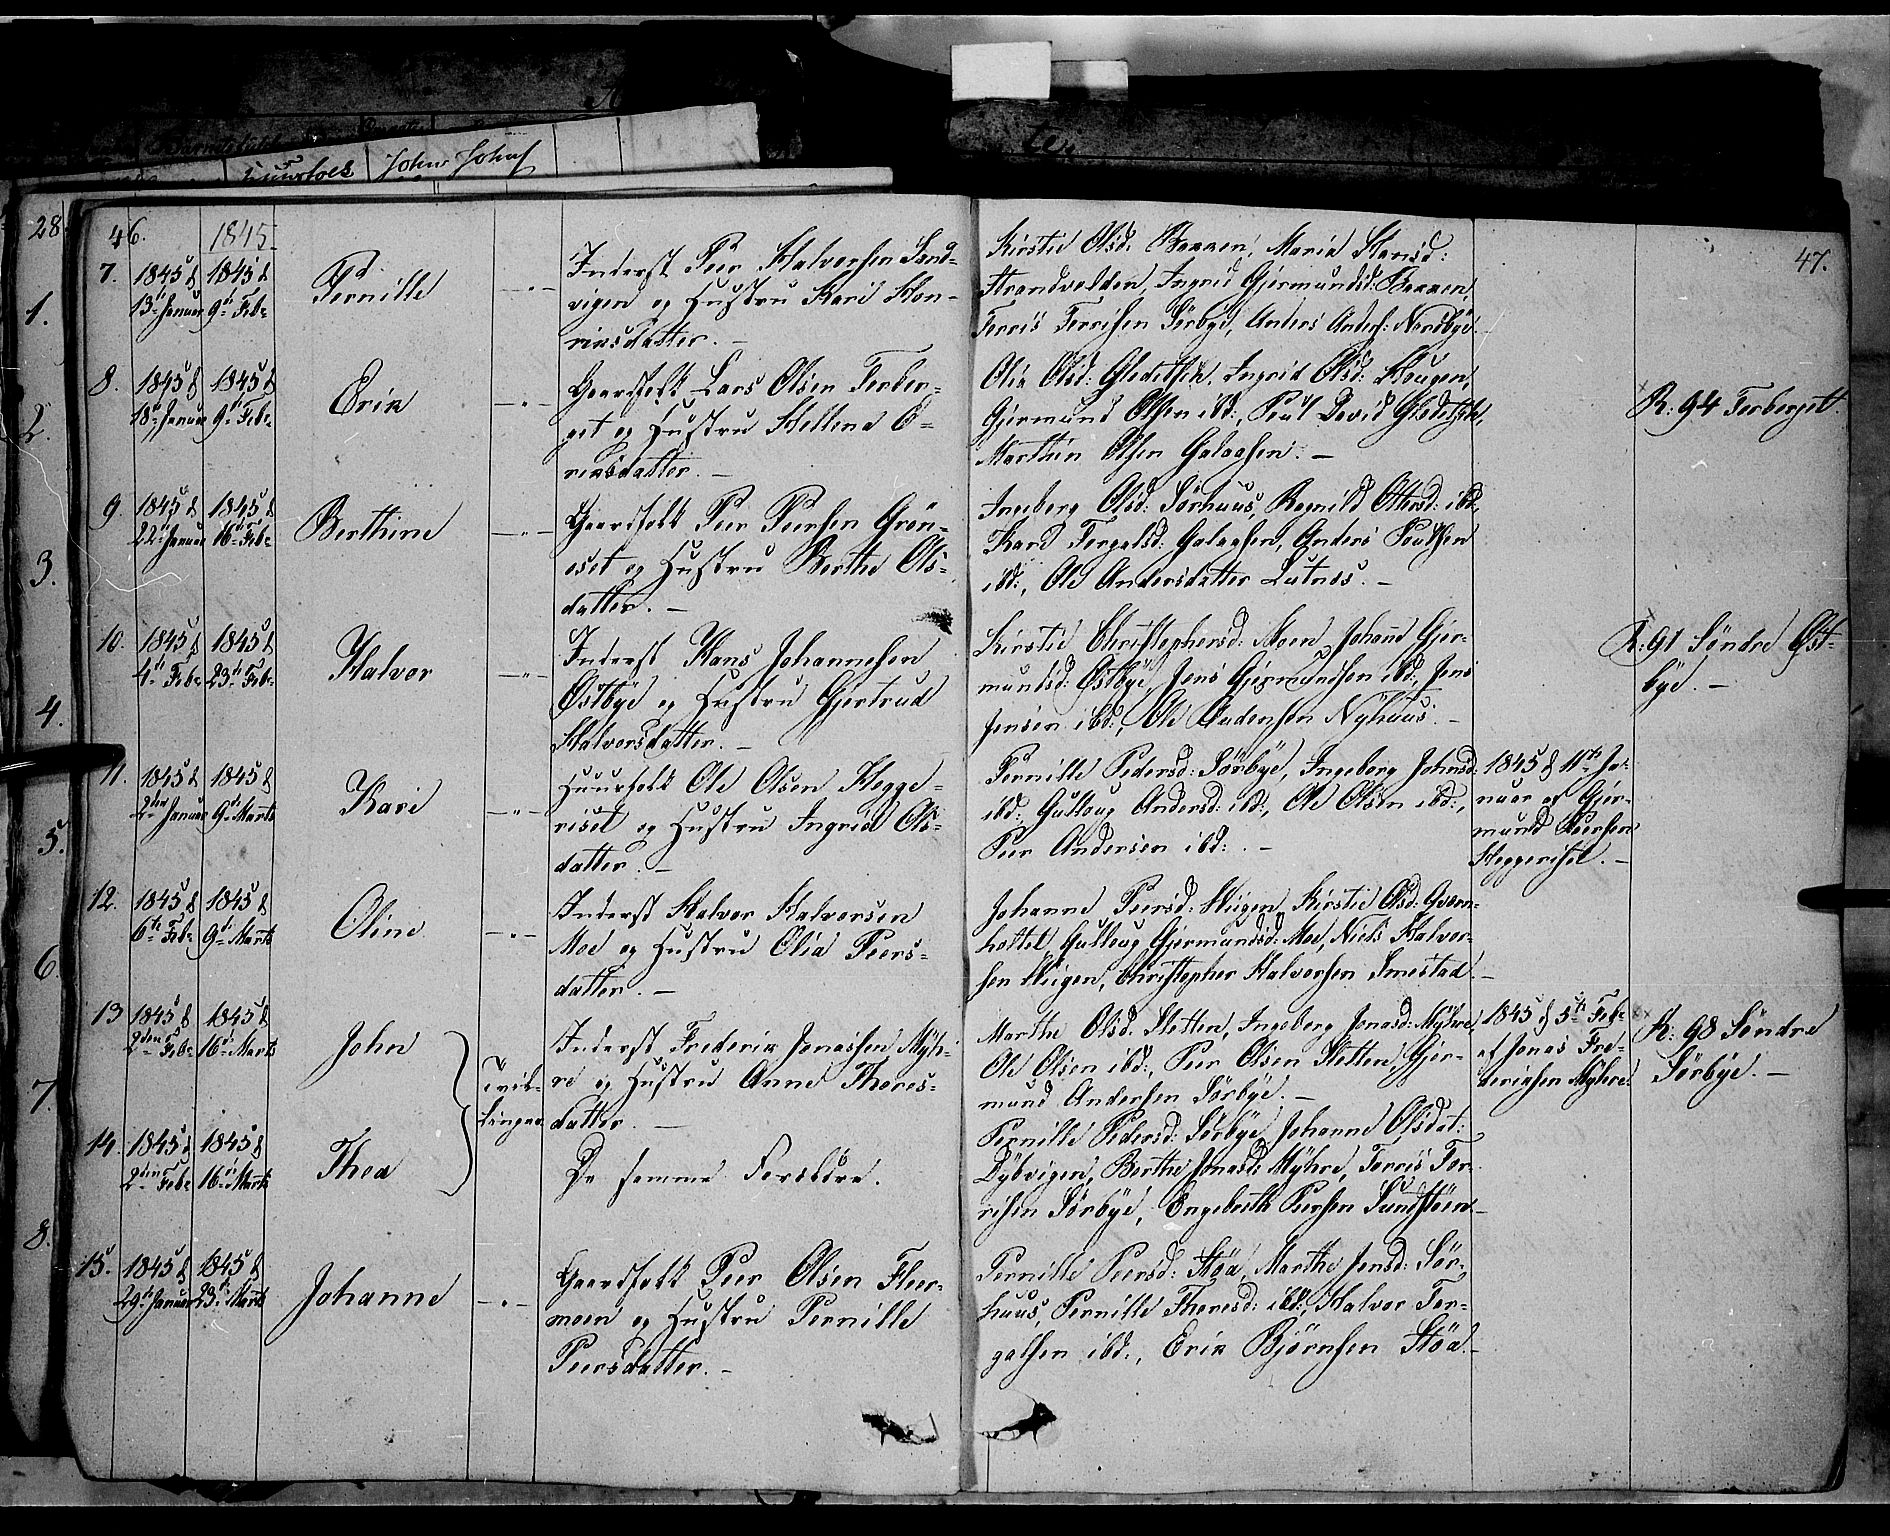 28 46. 1845.
47.
John Johns
7. 1845 d 13de Januar 1845 d 9de Febr Pernille
Inderst Peer Halvorsen Sand-
vigen og Hustru Kari Hen-
riksdatter. –
Kirstie Olsd: Bakken, Maria Hansd:
Strandvolden, Ingrid Gjermundsd: Bakken,
Terris Terrisen Sörbye, Anders Anders: Nordbye.
8. 1845 d 18de Januar 1845 d 9de Febr Erik
Gaardfolk Lars Olsen Torber-
get og Hustru Hellena E-
riksdatter. –
Olia Olsd: Gleditsch, Ingrid Olsd: Haugen,
Gjermund Olsen ibd:, Poul David Gleditsch,
Marthin Olsen Galaasen. –
R: 94 Torberget.
9. 1845 d 22de Januar 1845 d 16de Febr Berthine
Gaardfolk Peer Peersen Grön-
oset og Hustru Berthe Ols-
datter. –
Ingeborg Olsd: Sörhuus, Ragnild Ottersd: ibd,
Kari Torgalsd: Galaasen, Anders Poulsen
ibd:, Ole Andersdatter Lutnes. –
10. 1845 d 4de Febr 1845 d 23de Febr Halvor
Inderst Hans Johannesen
Östbye og Hustru Gjertrud
Halvorsdatter. –
Kirstie Christophersd: Moen, Johanne Gjer-
mundsd: Östbye, Jens Gjermundsen ibd:, Jens
Jensen ibd:, Ole Audensen Nyhuus. –
R: 91 Söndre Öst-
bye. –
11. 1845 d 2den Januar 1845 d 9de Marts Kari
Huusfolk Ole Olsen Hegge-
riset og Hustru Ingrid Ols-
datter. –
Pernille Pedersd: Sörbye, Ingeborg Johnsd:
ibd:, Gulloug Andersd: ibd:, Ole Olsen ibd:,
Peer Andersen ibd: . –
1845 d 11te Ja-
nuar af Gjer-
mund Peersen
Heggeriset. –
12. 1845 d 6te Febr 1845 d 9de Marts Oline
Inderst Halvor Halvorsen
Moe og Hustru Olia Peers-
datter. –
Johanne Peersd: Skigen, Kirstie Olsd: Grøn-
hottel, Gulloug Gjermundsd: Moe, Niels Halvor-
sen Skigen, Christopher Halvorsen Smestad. –
13 1845 d 2den Febr 1845 d 16de Marts John
Tvil-
linger
Inderst Frederik Jonassen Myh-
re og Hustru Anne Thores-
datter. –
Marthe Olsd: Sletten, Ingeborg Jonasd: Myhre,
Ole Olsen ibd:, Peer Olsen Sletten, Gjer-
mund Andersen Sörbye. –
1845 d 5te Febr
af Jonas Fre-
deriksen Myhre.
R: 98 Söndre
Sörbye. –
14. 1845 d 2den Febr 1845 d 16de Marts Thea
De samme Forældre.
Pernille Pedersd: Sörbye, Johanne Olsdat:
Dybvigen, Berthe Jonasd: Myhre, Terris Ter-
risen Sörbye, Engebreth Peersen Sundstöen. –
15. 1845 d 29de Januar 1845 d 23de Marts Johanne
Gaardfolk Peer Olsen Fleer-
moen og Hustru Pernille
Peersdatter. –
Pernille Peersd: Stöa, Marthe Jensd: Sör-
huus, Pernille Thoresd: ibd:, Halvor Tor-
galsen ibd:, Erik Björnsen Stöa. –
1.
2.
3.
4.
5.
6.
7.
8.